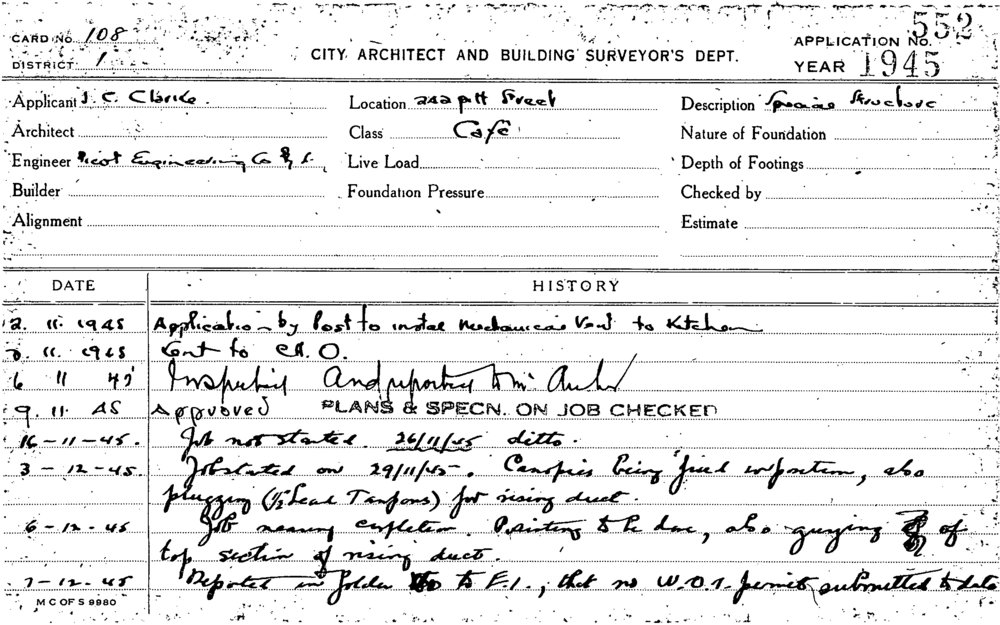 CARD NO. 108
DISTRICT 1
CITY ARCHITECT AND BUILDING SURVEYOR'S DEPT.
APPLICATION NO. 552
YEAR 1945
Applicant J. C. Clarke.
Location 242 Pitt Street
Description Special Structure
Architect
Class Café
Nature of Foundation
Engineer Engineering Co
Live Load
Depth of Footings
Builder
Foundation Pressure
Checked by
Alignment
Estimate
DATE
HISTORY
2. 11. 1945 Application by Post to instal Mechanical Vent to Kitchen
2. 11. 1945 Sent to C.H.O.
6 11 45 Inspected And reported to Mr
9. 11. 45 Approved PLANS & SPECN. ON JOB CHECKED
16-11-45. Job not started. 26/11/45 ditto.
3-12-45. Job started on 29/11/45. Canopies being fixed in position, also
plugging (½ Lead Tampons) for rising duct.
6-12-45 Job nearing completion. Painting to be done, also guying of
top section of rising duct.
7-12-45 Reported in folder to E.1., that no W.O.1. permit submitted to date
M C OF S 9980